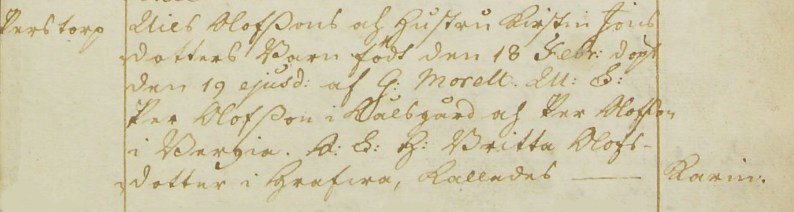 Perstorp Nils Olofßons och Hustru Kirstin Jons
dotters Barn födt den 18 Febr: döpt
den 19 ejusd: af C: Morell. M: G:
Per Olofßon i Bålsgård och Per Olofßon
i Bergia. Q: G: H: Britta Olofs-
dotter i Grafwa, kallades —— Karin.